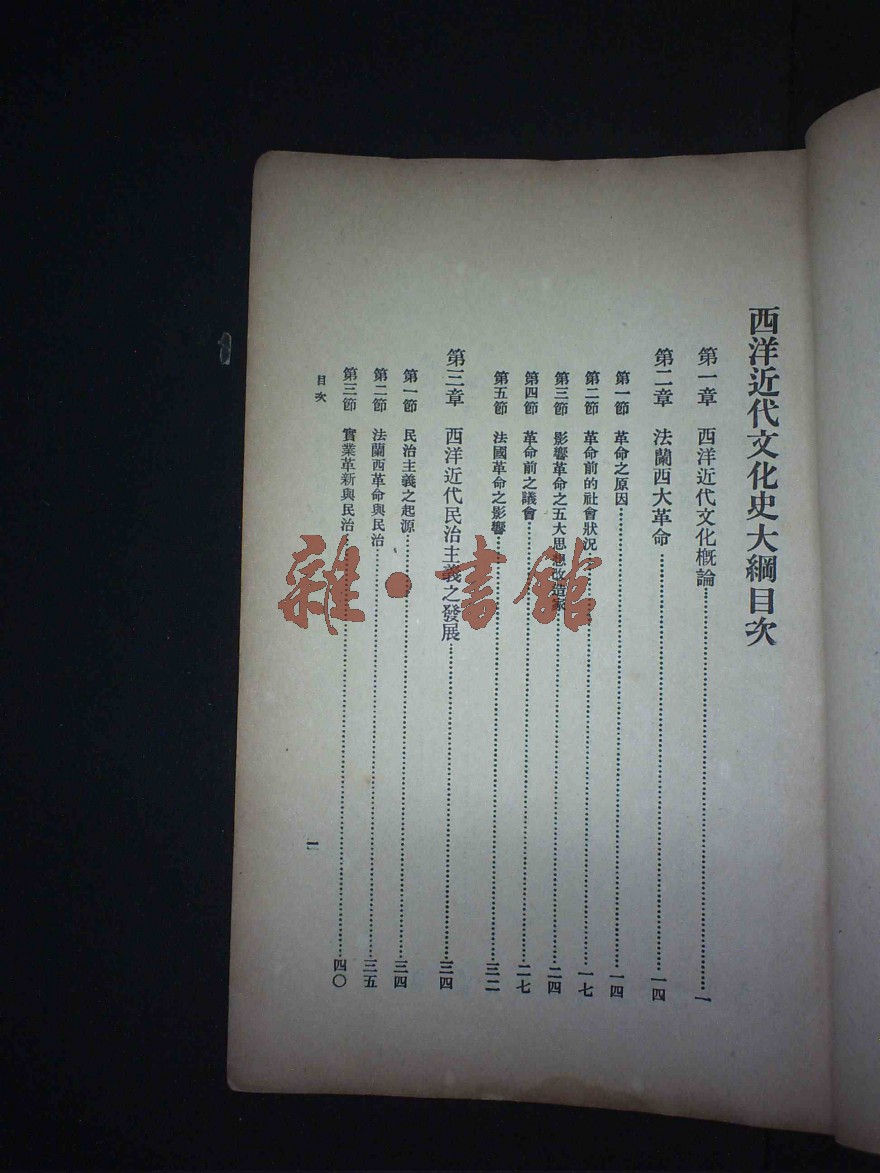 西洋近代文化史大綱目次
第一章　西洋近代文化概論……一
第二章　法蘭西大革命……一四
第一節　革命之原因……一四
第二節　革命前的社會狀况……一七
第三節　影響革命之五大思想改造家……二四
第四節　革命前之議會……二七
第五節　法國革命之影響……三二
第三章　西洋近代民治主義之發展……三四
第一節　民治主義之起源……三四
第二節　法蘭西革命與民治……三五
第三節　實業革新與民治……四〇
目次
一
雜·書館